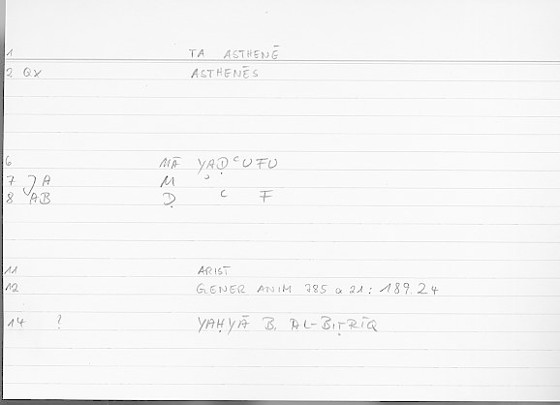 1 TA ASTHENĒ
2 QX ASTHENĒS
6 MĀ YAḌʿUFU
7 A M
8 AB Ḍ ʿ F
11 ARIST
12 GENER ANIM 785 a 21: 189.24
14 ? YAḤYĀ B. AL-BIṬRĪQ